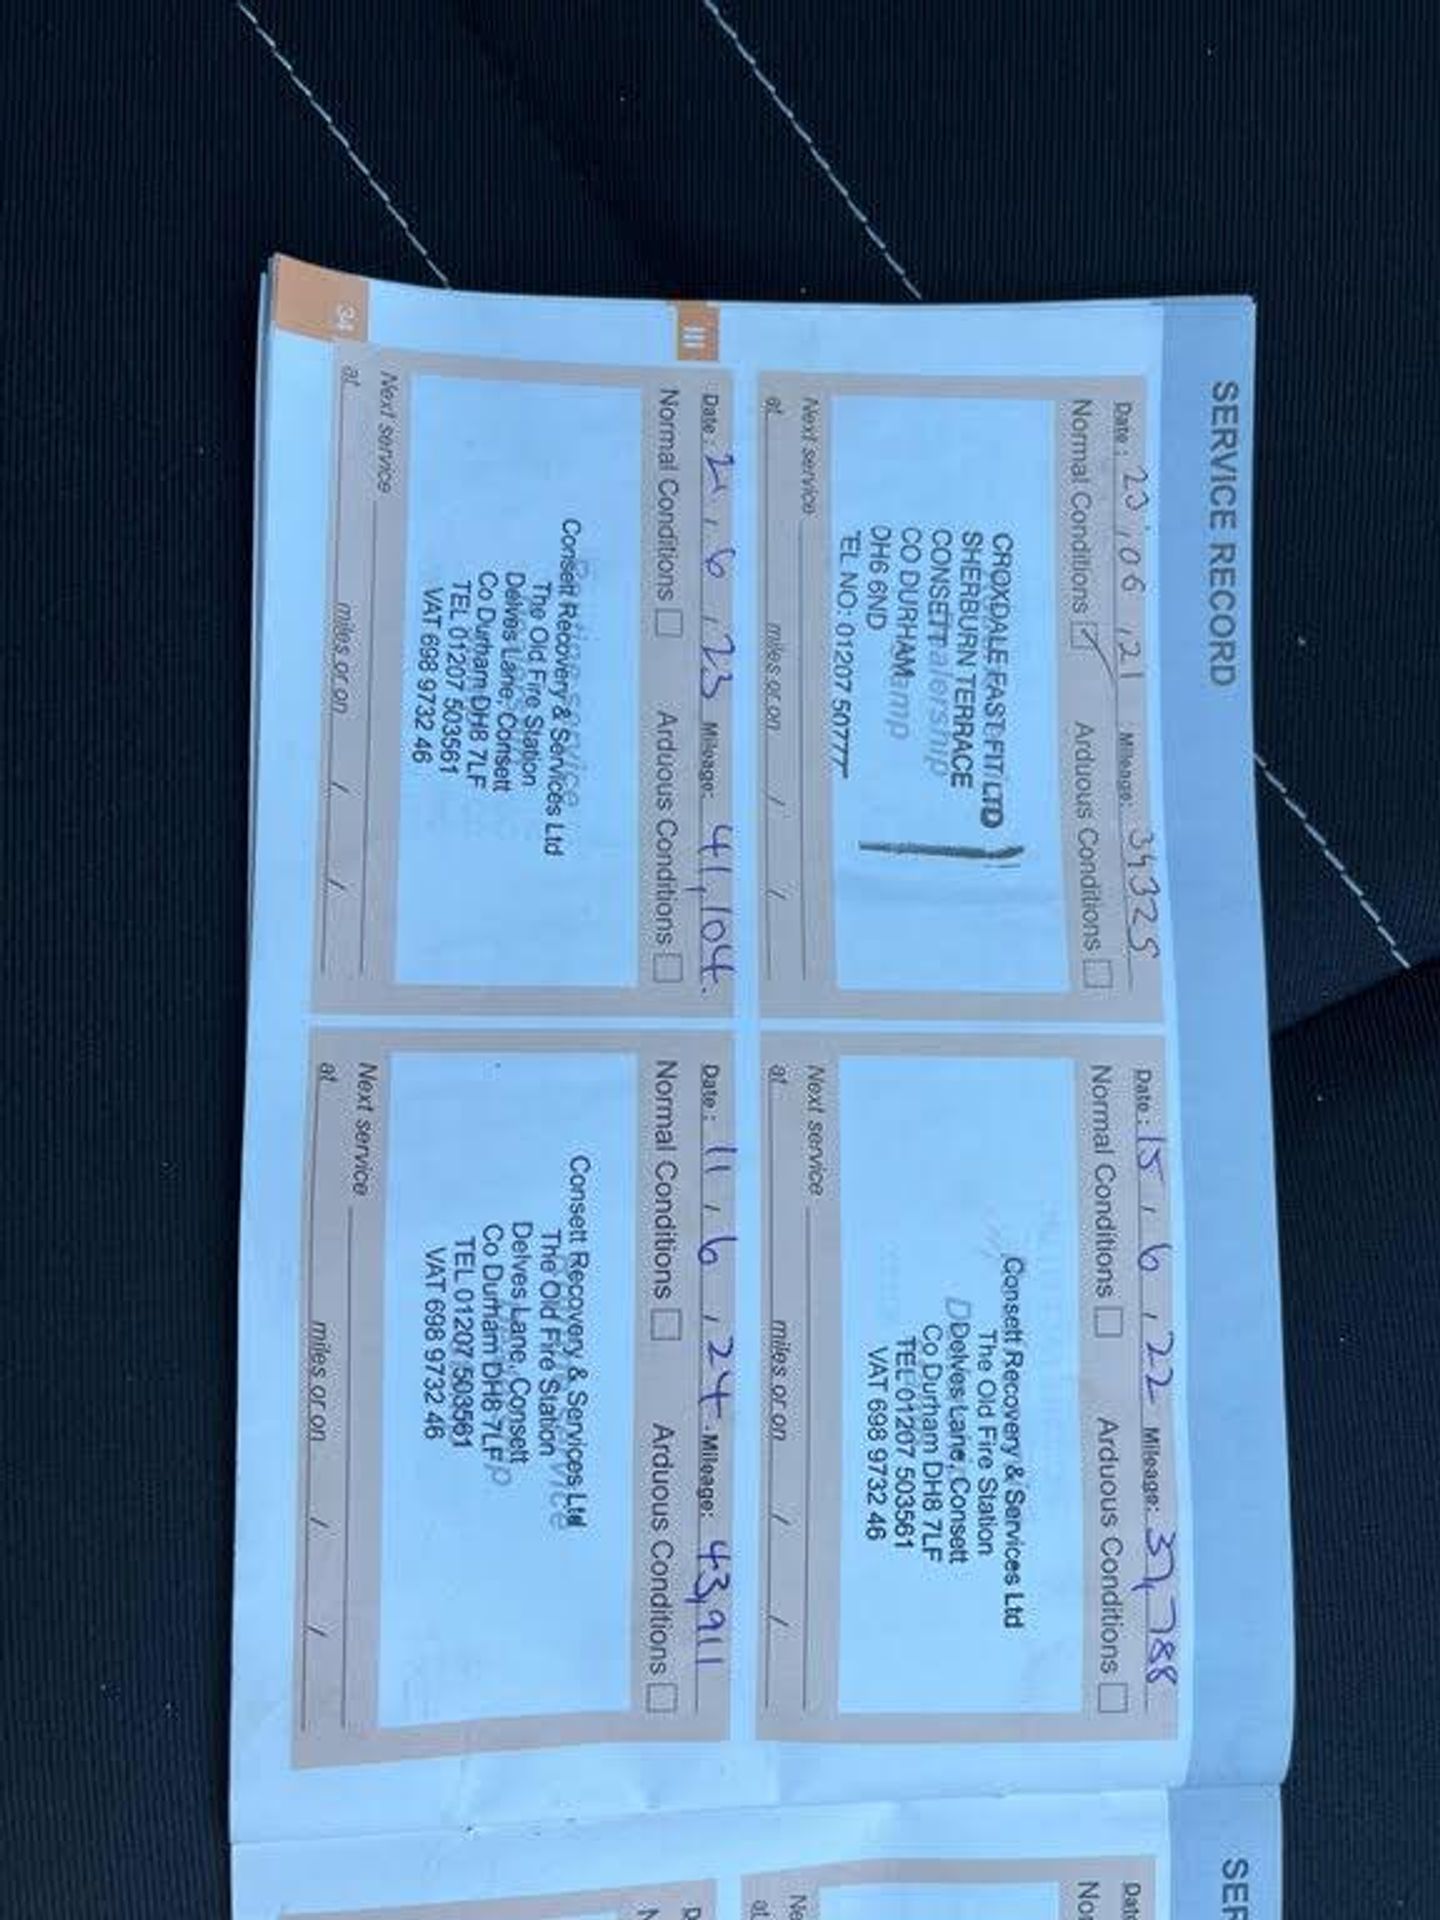 SERVICE RECORD
Date: 23,06,21 Mileage: 34325
Normal Conditions Arduous Conditions
CROXDALE FAST FIT LTD
SHERBURN TERRACE
CONSETT
CO DURHAM
DH6 6ND
TEL NO: 01207 50777
Next service
at miles or on / /
Date: 15,6,22 Mileage: 37,788
Normal Conditions Arduous Conditions
Consett Recovery & Services Ltd
The Old Fire Station
Delves Lane, Consett
Co Durham DH8 7LF
TEL 01207 503561
VAT 698 9732 46
Next service
at miles or on / /
III
Date: 21,6,23 Mileage: 41,104.
Normal Conditions Arduous Conditions
Consett Recovery & Services Ltd
The Old Fire Station
Delves Lane, Consett
Co Durham DH8 7LF
TEL 01207 503561
VAT 698 9732 46
Next service
at miles or on / /
Date: 11,6,24. Mileage: 43,911
Normal Conditions Arduous Conditions
Consett Recovery & Services Ltd
The Old Fire Station
Delves Lane, Consett
Co Durham DH8 7LF
TEL 01207 503561
VAT 698 9732 46
Next service
at miles or on / /
34
SER
Date
Nor
Ne
at
D
N